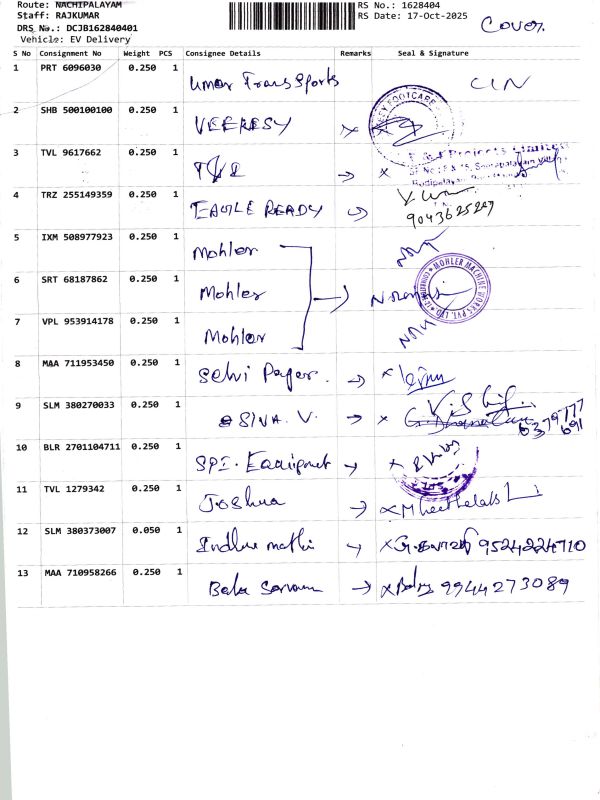 Route: NACHIPALAYAM
Staff: RAJKUMAR
DRS No.: DCJB162840401
Vehicle: EV Delivery
RS No.: 1628404
RS Date: 17-Oct-2025
Cover.
S No Consignment No Weight PCS Consignee Details Remarks Seal & Signature
1 PRT 6096030 0.250 1 Umar Transports
2 SHB 500100100 0.250 1 VEERESY
3 TVL 9617662 0.250 1
4 TRZ 255149359 0.250 1 EAGLE READY
5 IXM 508977923 0.250 1 Mohler
6 SRT 68187862 0.250 1 Mohler
MOHLER MACHINE WORKS PVT. LTD
7 VPL 953914178 0.250 1 Mohler
8 MAA 711953450 0.250 1 Selvi Paper.
9 SLM 380270033 0.250 1 SIVA. V. 6379777691
10 BLR 2701104711 0.250 1 SPI. Equipment
11 TVL 1279342 0.250 1 Joshua
12 SLM 380373007 0.050 1 Indhu mathi 9524224710
13 MAA 710958266 0.250 1 Bala 9944273089